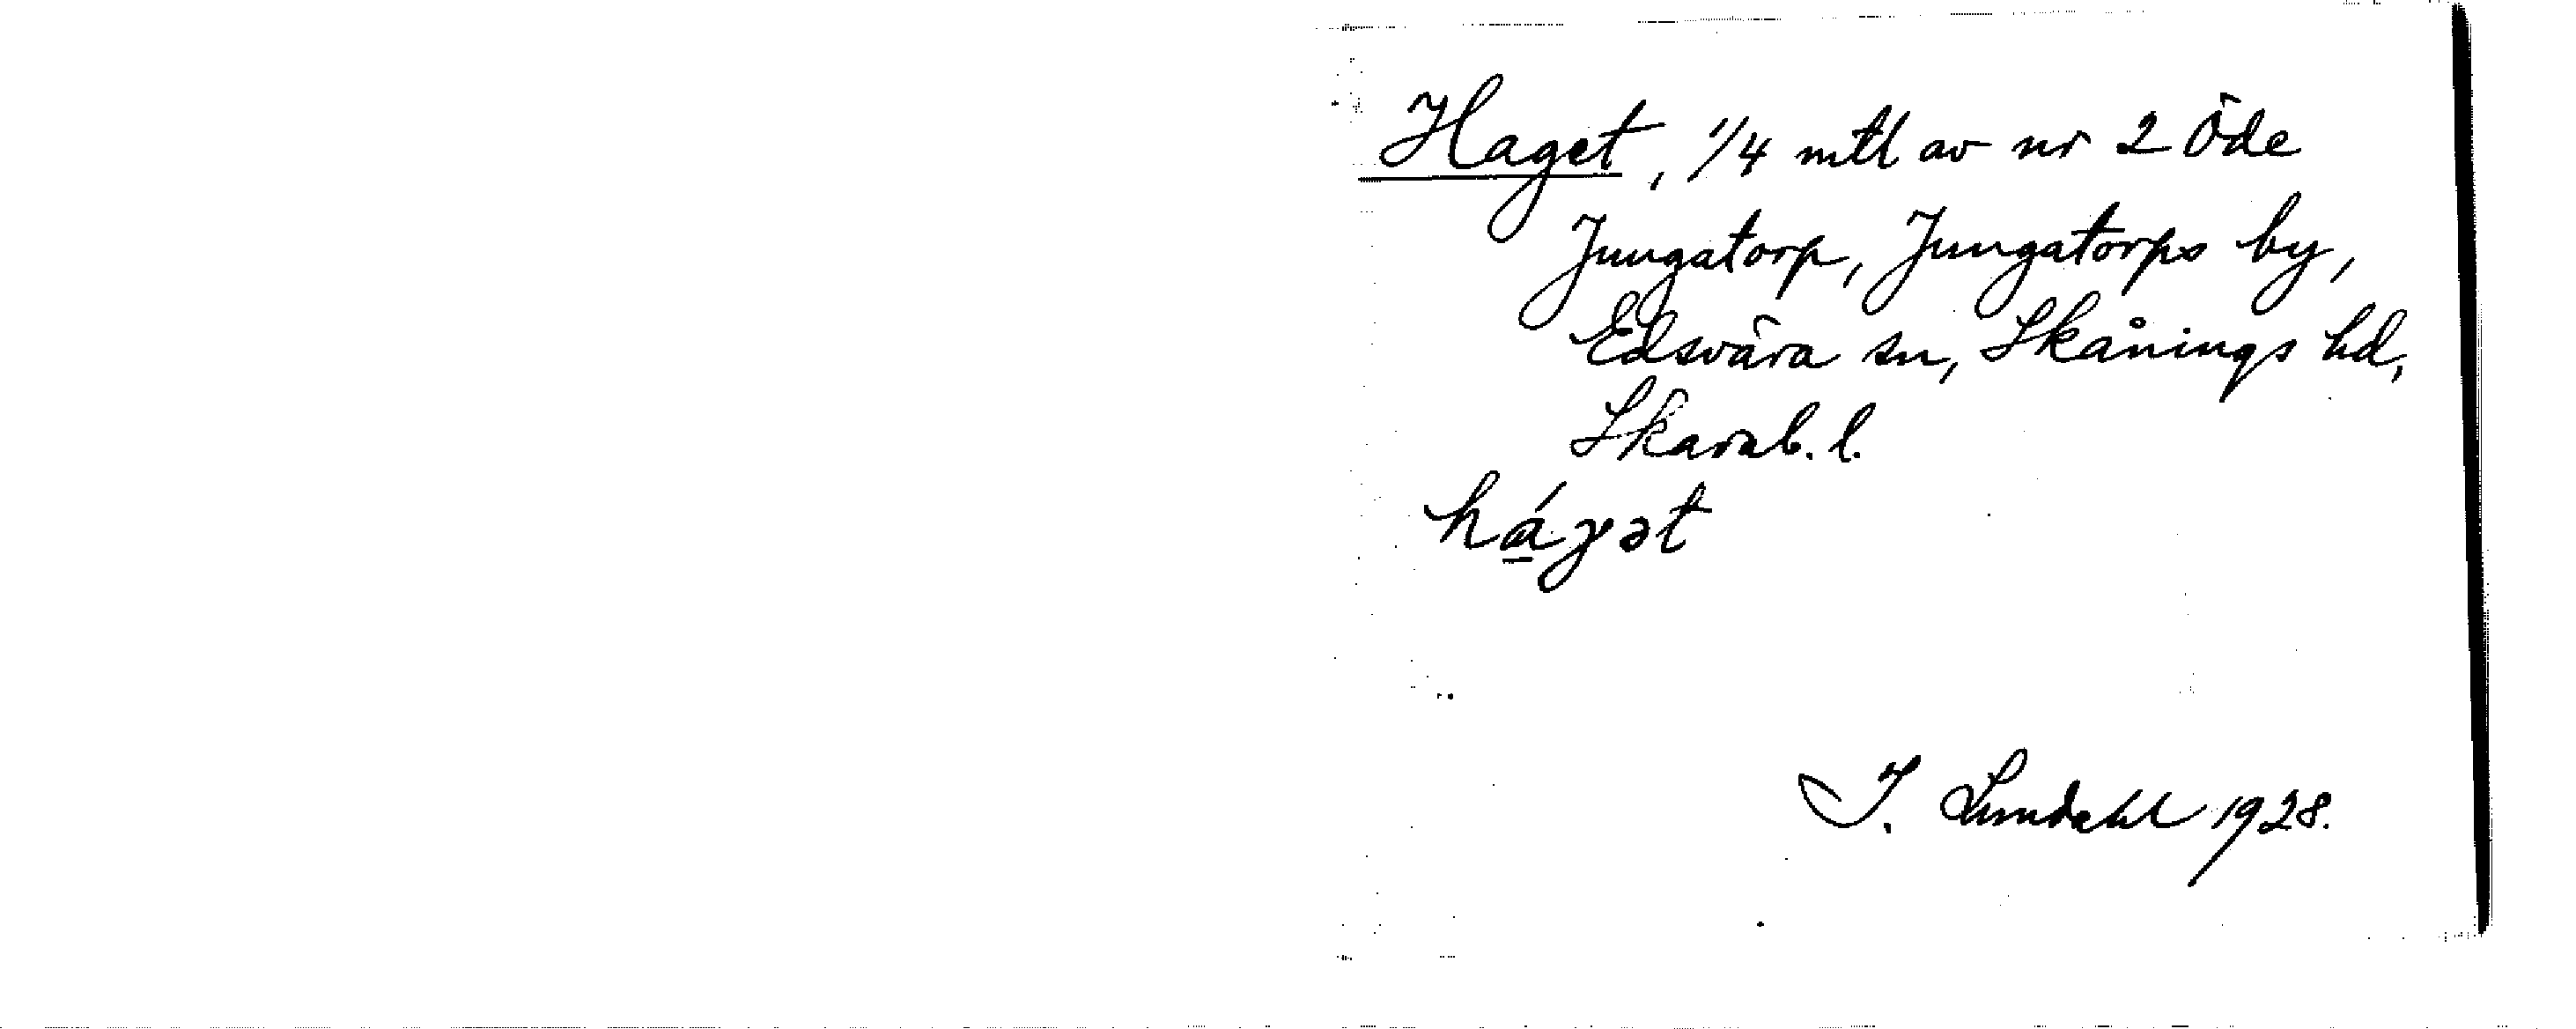 Haget, 1/4 mtl av nr 2 Öde
Jungatorp, Jungatorps by,
Edsvära sn, Skånings hd,
Skarab. l.
há̱γət
I. Lundahl 1928.